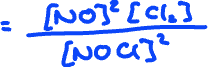 = [NO]² [Cl₂]
[NOCl]²